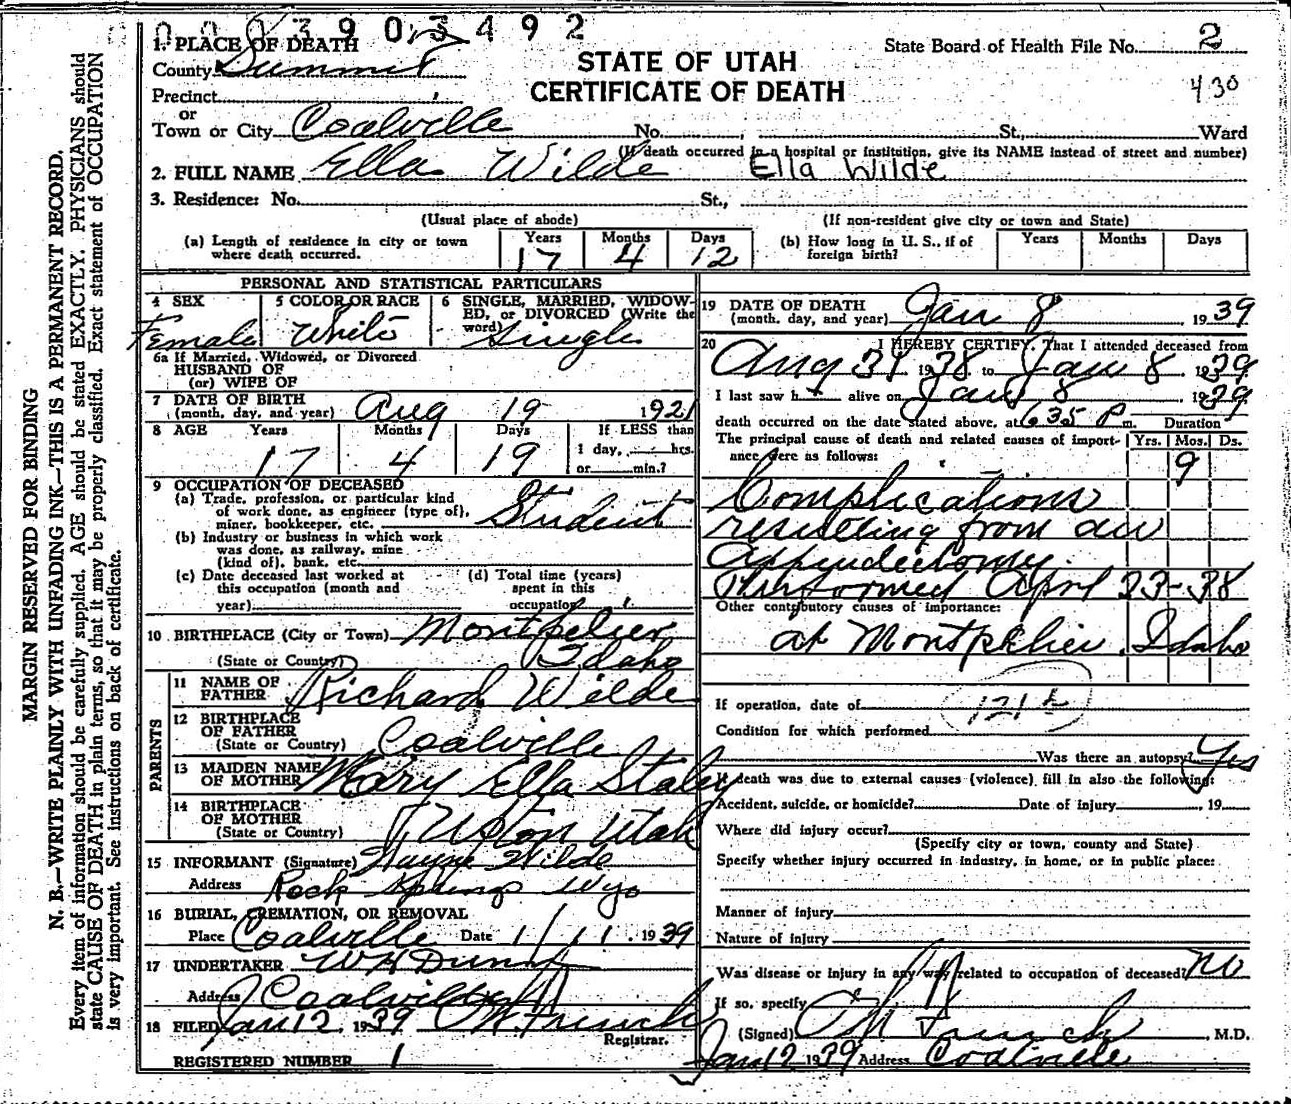 0 0 0 3 9 0 3 4 9 2
STATE OF UTAH
CERTIFICATE OF DEATH
State Board of Health File No. 2
430
1. PLACE OF DEATH
County Summit
Precinct
or
Town or City Coalville No. , St., Ward
(If death occurred in a hospital or institution, give its NAME instead of street and number)
2. FULL NAME Ella Wilde Ella Wilde
3. Residence: No. St.,
(Usual place of abode) (If non-resident give city or town and State)
(a) Length of residence in city or town where death occurred. Years 17 Months 4 Days 12
(b) How long in U. S., if of foreign birth? Years Months Days
PERSONAL AND STATISTICAL PARTICULARS
4 SEX Female
5 COLOR OR RACE White
6 SINGLE, MARRIED, WIDOWED, or DIVORCED (Write the word) Single
6a If Married, Widowed, or Divorced
HUSBAND OF
(or) WIFE OF
7 DATE OF BIRTH
(month, day, and year) Aug 19 1921
8 AGE Years 17 Months 4 Days 19 If LESS than 1 day, hrs. or min.?
9 OCCUPATION OF DECEASED
(a) Trade, profession, or particular kind
of work done, as engineer (type of),
miner, bookkeeper, etc. Student
(b) Industry or business in which work
was done, as railway, mine
(kind of), bank, etc.
(c) Date deceased last worked at
this occupation (month and
year)
(d) Total time (years)
spent in this
occupation
10 BIRTHPLACE (City or Town) Montpelier,
(State or Country) Idaho
PARENTS
11 NAME OF
FATHER Richard Wilde
12 BIRTHPLACE
OF FATHER
(State or Country) Coalville
13 MAIDEN NAME
OF MOTHER Mary Ella Staley
14 BIRTHPLACE
OF MOTHER
(State or Country) Upton Utah
15 INFORMANT (Signature) Wayne Wilde
Address Rock Springs Wyo
16 BURIAL, CREMATION, OR REMOVAL
Place Coalville Date 1/11. 1939
17 UNDERTAKER W H Dunn
Address Coalville
18 FILED Jan 12 1939
Registrar.
REGISTERED NUMBER 1
19 DATE OF DEATH
(month, day, and year) Jan 8 1939
20 I HEREBY CERTIFY, That I attended deceased from
Aug 31 1938 to Jan 8 1939
I last saw h alive on Jan 8 1939
death occurred on the date stated above, at 635 P m. Duration
The principal cause of death and related causes of importance were as follows: Yrs. Mos. Ds.
9
Complications
resulting from an
appendectomy
Performed April 23-38
Other contributory causes of importance:
at Montpelier. Idaho
If operation, date of
121
Condition for which performed
Was there an autopsy? Yes
If death was due to external causes (violence) fill in also the following:
Accident, suicide, or homicide? Date of injury , 19
Where did injury occur?
(Specify city or town, county and State)
Specify whether injury occurred in industry, in home, or in public place:
Manner of injury
Nature of injury
Was disease or injury in any way related to occupation of deceased? No
If so, specify
(Signed) , M.D.
Jan 12 1939 Address Coalville
MARGIN RESERVED FOR BINDING
N. B.—WRITE PLAINLY WITH UNFADING INK—THIS IS A PERMANENT RECORD.
Every item of information should be carefully supplied. AGE should be stated EXACTLY. PHYSICIANS should
state CAUSE OF DEATH in plain terms, so that it may be properly classified. Exact statement of OCCUPATION
is very important. See instructions on back of certificate.